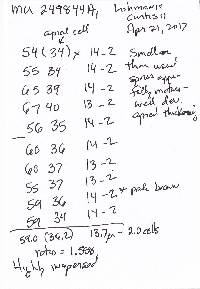 MU 249844A,
Curtis 11
Apr 21, 2017
apical cell
54 (34) x 14-2 Smaller
55 39 14-2 than usual
65 39 14-2 spores appar
67 40 13-2
well dev.
56 35 14-2 apical thickening
60 36 14-2
60 37 13-2
55 37 13-2
59 36 14-2 * pale brown
59 34 14-2
59.0 (36.2) 13.7 µm - 2.0 cells
ratio = 1.538
Highly